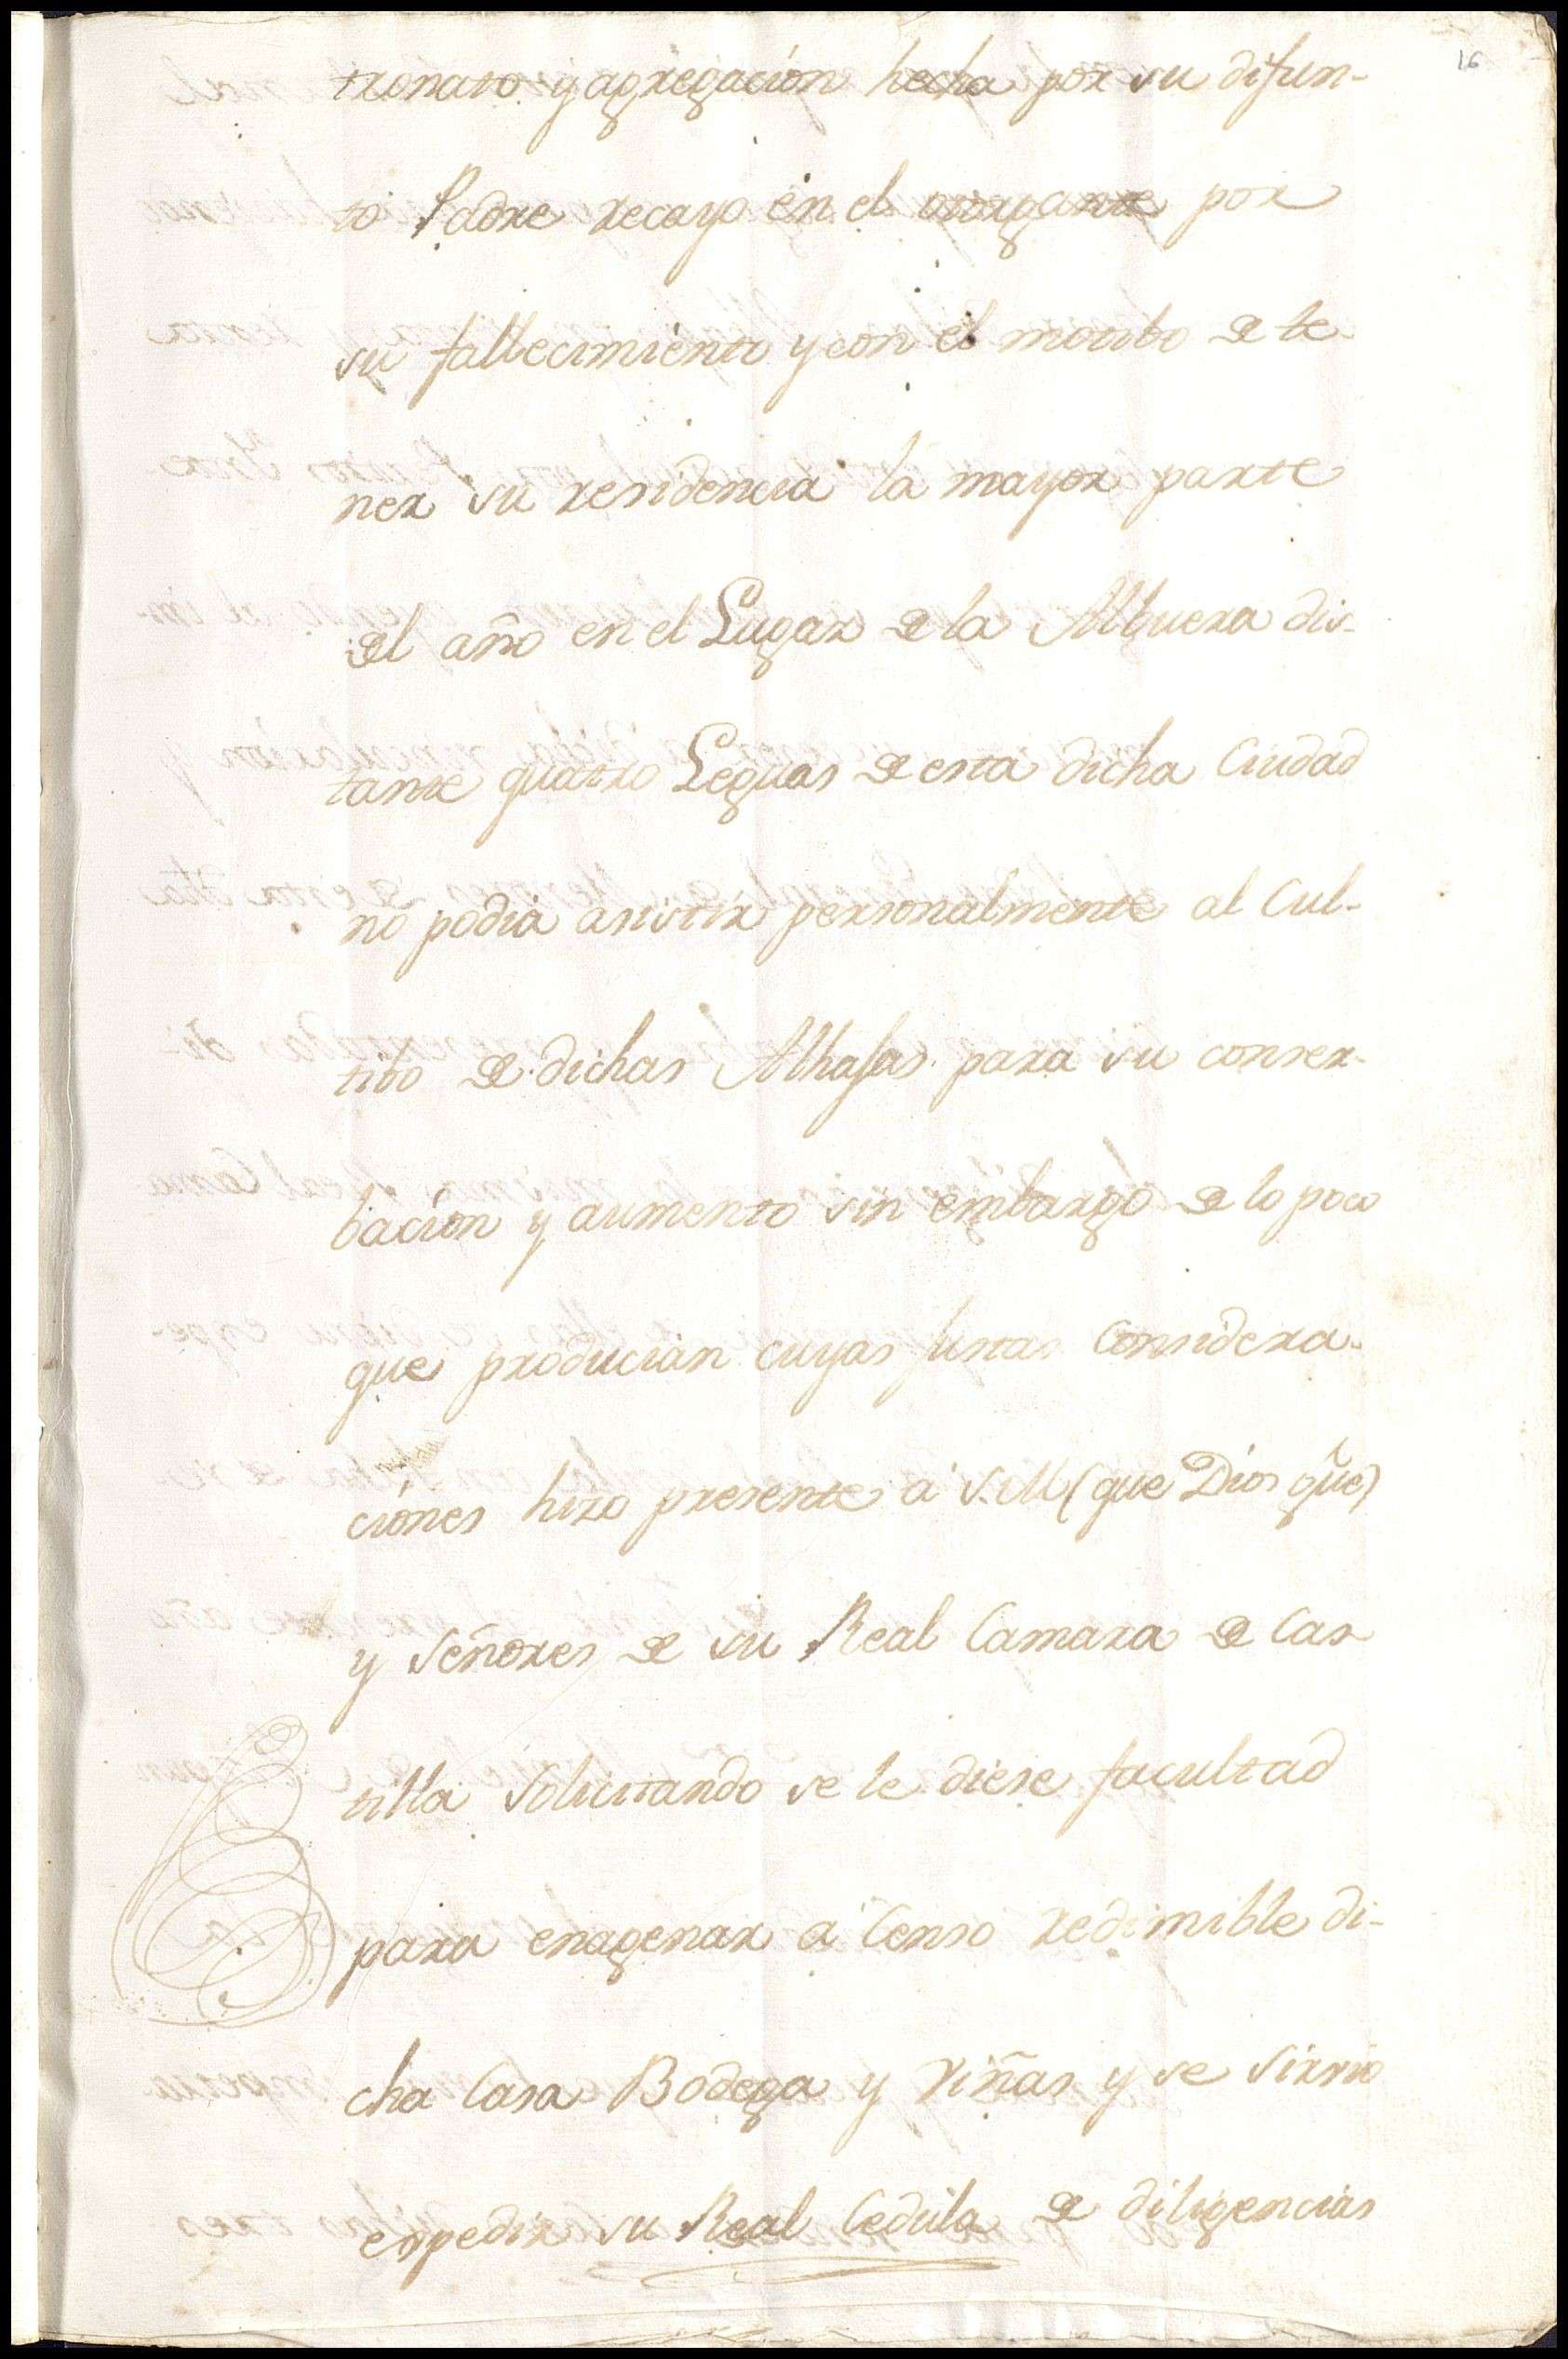 16
tronato y agregación hecha por su difun-
to Padre recayo en el otorgante por
su fallecimiento y con el motibo de te-
ner su residencia la mayor parte
del año en el Lugar de la Albuera dis-
tante quatro Leguas de esta dicha Ciudad
no podia asistir personalmente al Cul-
tibo de dichas Alhajas para su conser-
bación y aumento sin embargo de lo poco
que producian cuyas Justas Considera-
ciónes hizo presente a S.M (que Dios gũe)
y Señores de su Real Camara de Cas
tilla Solicitando se le diese facultad
para enagenar a Censo redimible di-
cha Casa Bodega y Viñas y se Sirvio
expedir su Real Cedula de diligencias